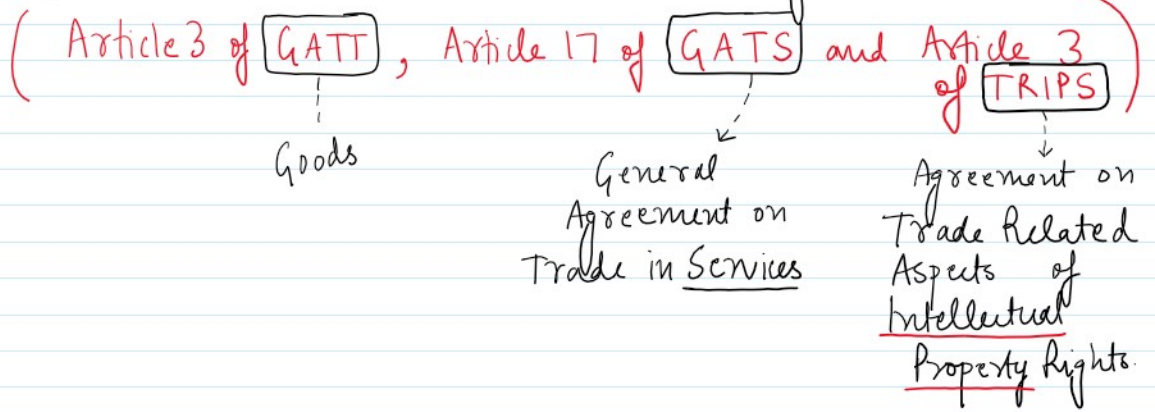 ( Article 3 of GATT, Article 17 of GATS and Article 3
of TRIPS )
Goods
General
Agreement on
Trade in Services
Agreement on
Trade Related
Aspects of
Intellectual
Property Rights.